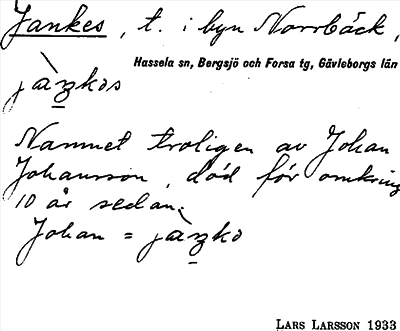 Jankes, t. i byn Norrbäck,
Hassela sn, Bergsjö och Forsa tg, Gävleborgs län
jàn̠kos
Namnet troligen av Johan
Johansson, död för omkring
10 år sedan.
Johan = jàn̠ko
LARS LARSSON 1933